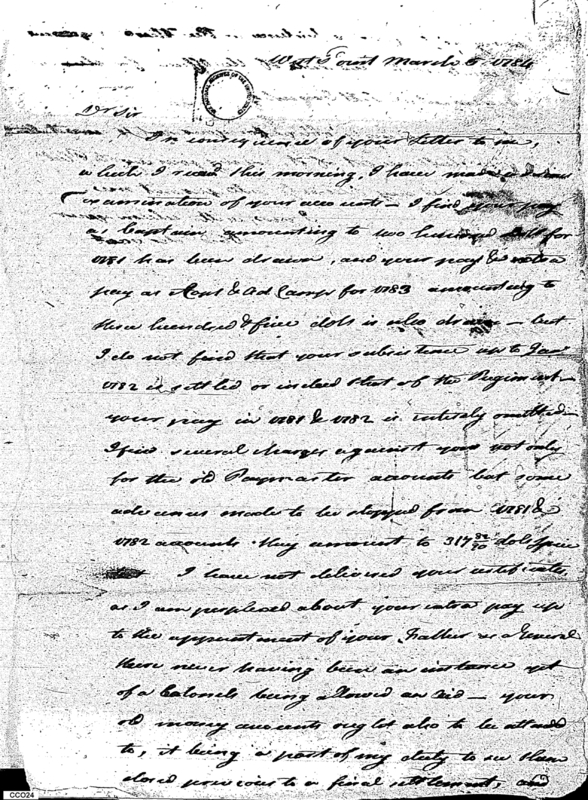 West Point March 5. 1784
Dr Sir
In consequence of your Letter to me,
which I recd this morning, I have made a
examination of your accounts – I find your pay
as Captain amounting to two hundred dolls for
1781 has been drawn, and your pay & extra
pay as Capt & Ad Camp for 1783 amounting to
three hundred & five dols is also drawn – but
I do not find that your subsistence up to Jany
1782 is settled or indeed that of the Regiment –
your pay in 1781 & 1782 is entirely omitted –
I find several charges against you not only
for the old Paymaster accounts but some
advances made to be stopped from 1781 &
1782 accounts they amount to 317 82/90 dols specie
I have not delivered your certificates
as I am perplexed about your extra pay up
to the appointment of your Father as a General
there never having been an instance yet
of a Colonels being allowed an Aid – your
old money accounts ought also to be attended
to, it being a part of my duty to see them
closed previous to a final settlement, and
CC024